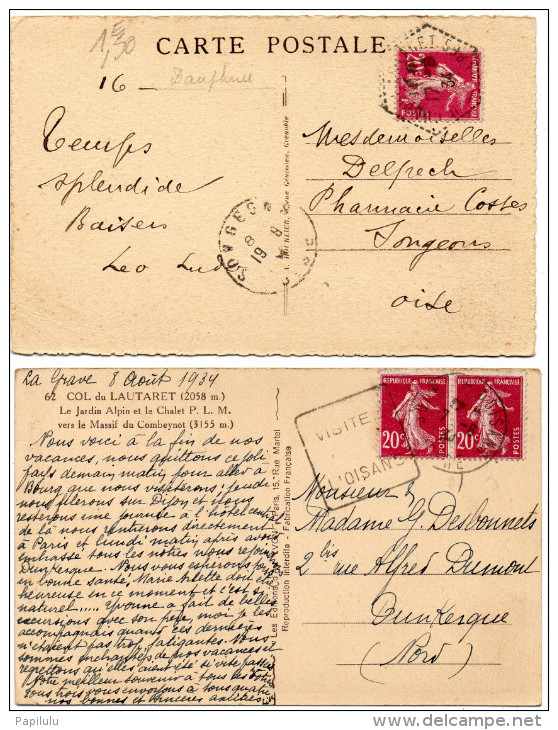 1,50
CARTE POSTALE
16 - Dauphiné
Temps
splendide
Baisers
Leo Lud
Mesdemoiselles
Delpech
Pharmacie Costes
Songeons
Oise
SONGEONS
19 8
La Grave 8 Août 1934
62 COL du LAUTARET (2058 m.)
Le Jardin Alpin et le Chalet P. L. M.
vers le Massif du Combeynot (3155 m.)
Nous voici à la fin de nos
vacances, nous quittons ce joli
pays demain matin pour aller à
Bourg que nous visiterons; jeudi
nous filerons sur Dijon et nous
resterons une journée à l'hôtel
de là nous rentrerons directement
à Paris et lundi matin, après avoir
embrassé tous les nôtres nous
Dunkerque. Nous vous espérons tous
en bonne santé, Marie Arlette doit être
heureuse en ce moment et c'est si
naturel..... Yvonne a fait de belles
excursions avec son père, moi je les
accompagnais quand ces dernières
n'étaient pas trop fatigantes. Nous
sommes enchantés de nos vacances et
regrettons qu'elles aient été si vite
Notre meilleur souvenir à tous
tous trois vous envoyons à tous quatre
nos bonnes et sincères amitiés
Reproduction interdite - Fabrication Française
VISITEZ
L'OISANS
REPUBLIQUE FRANÇAISE
20c
POSTES
REPUBLIQUE FRANÇAISE
20c
POSTES
Monsieur &
Madame G. Desbonnets
2 bis rue Alfred Dumont
Dunkerque
(Nord)
Papilulu
www.delcampe.net